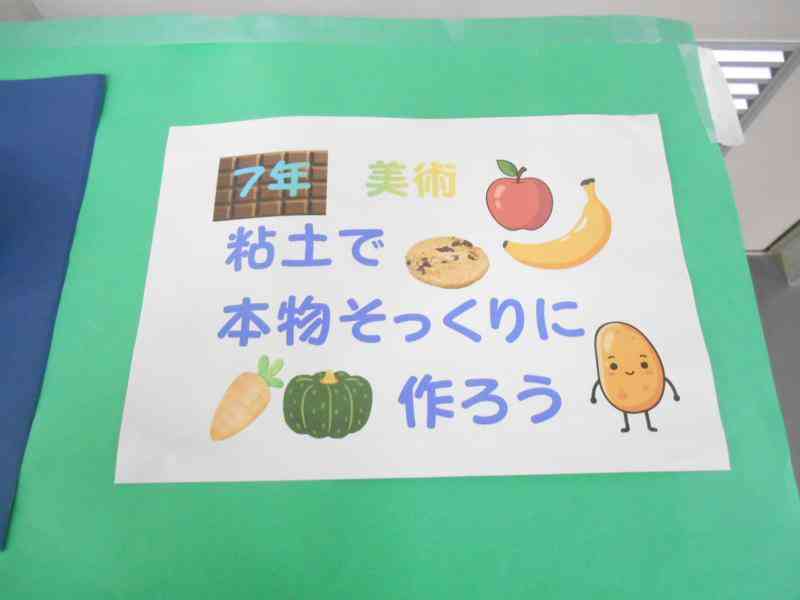 7年 美術
粘土で
本物そっくりに
作ろう